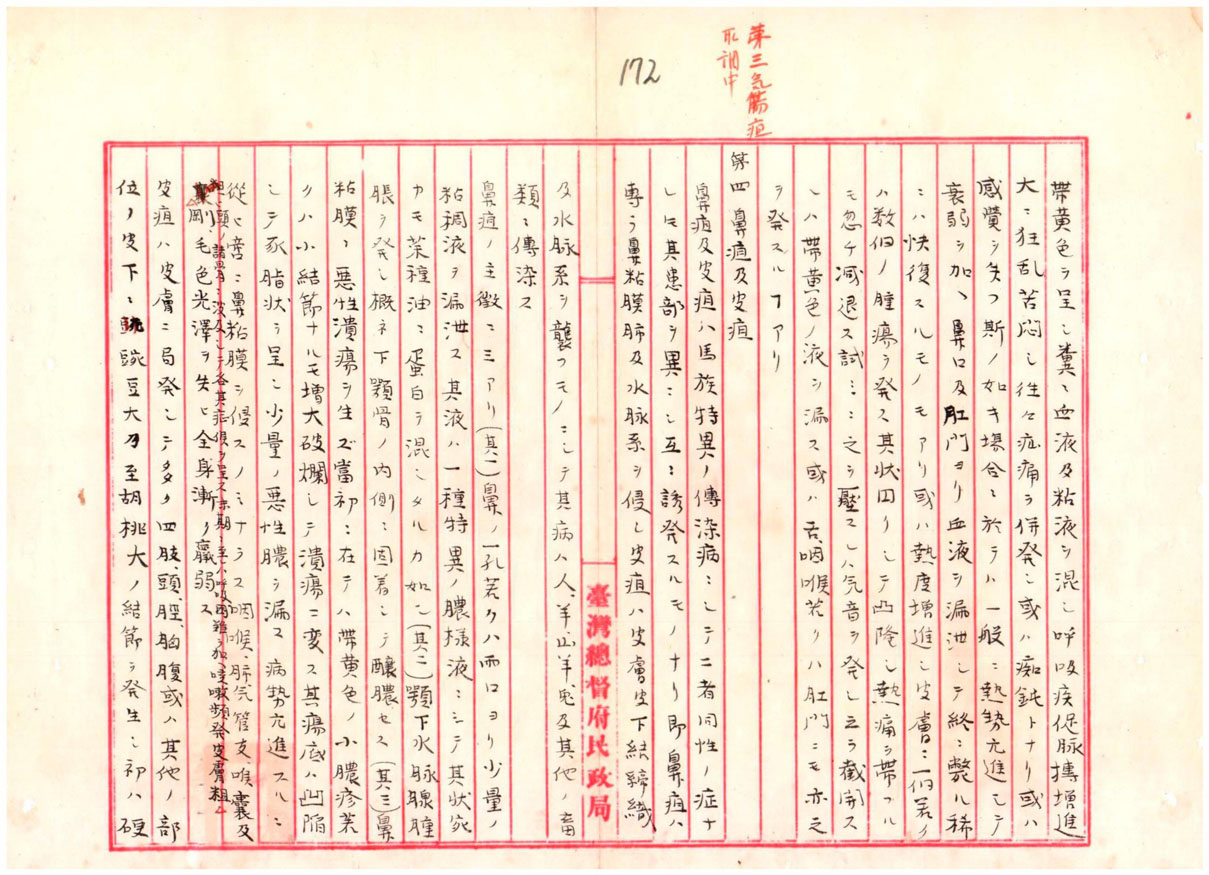 172
第三気腸疽
取調中
帯黄色ヲ呈シ糞ニ血液及粘液ヲ混シ呼吸疾促脉摶増進
大ニ狂乱苦悶シ往々疝痛ヲ併発シ或ハ痴鈍トナリ或ハ
感覺ヲ失フ斯ノ如キ塲合ニ於テハ一般ニ熱勢亢進シテ
衰弱ヲ加ヘ鼻口及肛門ヨリ血液ヲ漏泄シテ終ニ斃ル稀
ニハ快復スルモノモアリ或ハ熱度増進シ皮膚ニ一個若クハ
数個ノ腫瘍ヲ発ス其状凹リシテ凸隆シ熱痛ヲ帶フル
モ忽チ减退ス試ミニ之ヲ壓スレハ气音ヲ発シ之ヲ截開ス
レハ帯黄色ノ液ヲ漏ス或ハ舌咽喉若クハ肛門ニモ亦之
ヲ発スルヿアリ
第四 鼻疽及皮疽
鼻疽及皮疽ハ馬族特異ノ傳染病ニシテ二者同性ノ症ナ
レモ其患部ヲ異ニシ互ニ誘発スルモノナリ即鼻疽ハ
専ラ鼻粘膜肺及水脉系ヲ侵シ皮疽ハ皮膚皮下結締織
及水脉系ヲ襲フモノニシテ其病ハ人、羊、山羊、兎及其他ノ畜
類ニ傳染ス
鼻疽ノ主徴ニ三アリ(其一)鼻ノ一孔若クハ両口ヨリ少量ノ
粘稠液ヲ漏泄ス其液ハ一種特異ノ膿様液ニシテ其状宛
カモ菜種油ニ蛋白ヲ混シタルカ如シ(其二)顎下水脉腺腫
脹ヲ発シ概ネ下顎骨ノ内側ニ固着シテ釀膿セス(其三)鼻
粘膜ニ悪性潰瘍ヲ生ズ當初ニ在テハ帯黄色ノ小膿疹若
クハ小結節ナルモ増大破爛シテ潰瘍ニ変ス其瘍底ハ凹陷
シテ豕脂状ヲ呈シ少量ノ悪性膿ヲ漏ス病勢亢進スルニ
從ヒ啻ニ鼻粘膜ヲ侵スノミナラス咽喉、肺、气管支、喉嚢及
頭ノ諸竇ニ波及シテ各其症候ヲ呈ス末期ニ至レハ呼吸困難ヲ加ヘ咳嗽頻発皮膚粗
剛毛色光澤ヲ失ヒ全身漸ク羸弱ス
皮疽ハ皮膚ニ局発シテ多ク四肢、頭、脛、胸腹或ハ其他ノ部
位ノ皮下ニ豌豆大乃至胡桃大ノ結節ヲ発生シ初ハ硬
臺灣總督府民政局